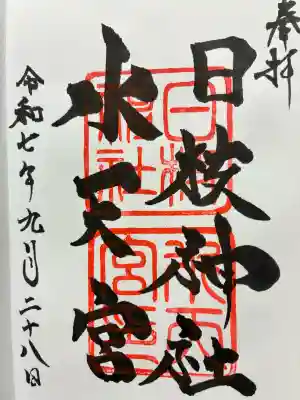 奉拝
日枝神社
水天宮
令和七年九月二十八日
日枝神社
水天宮